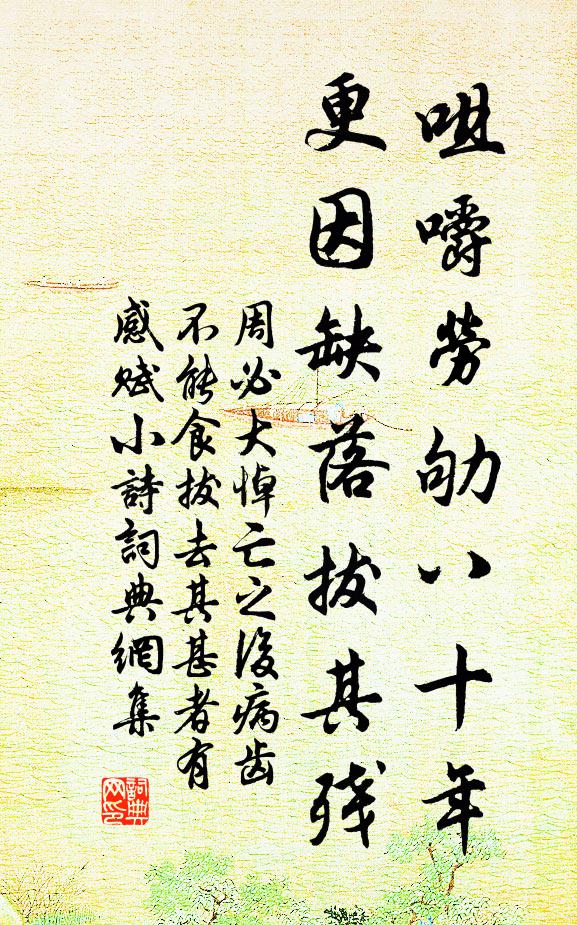 咀嚼勞劬八十年
更因缺落拔其残
周必大悼亡之後病齿
不能食拔去其甚者有
感赋小詩詞典網集
詞典
网印